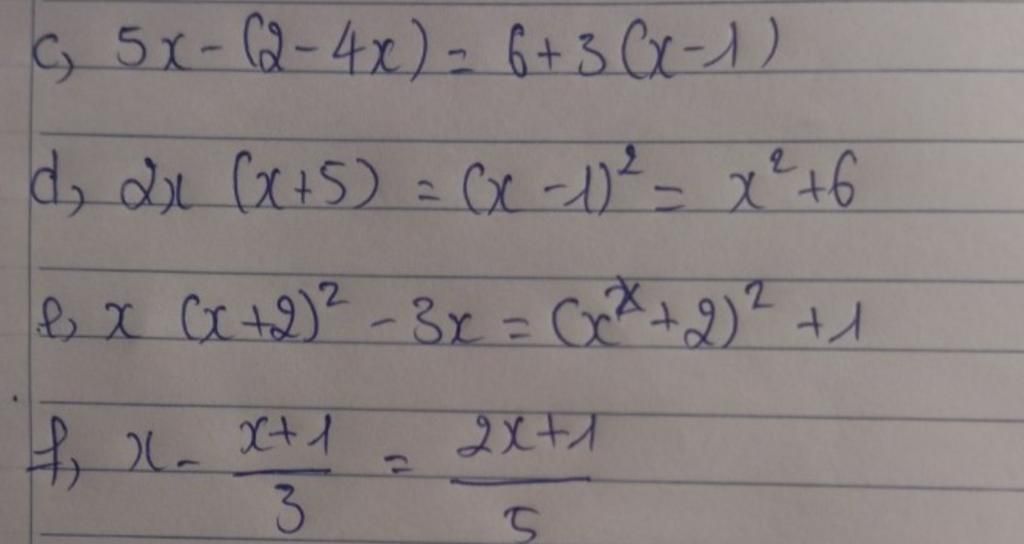 c, 5x - (2 - 4x) = 6 + 3 (x - 1)
d, 2x (x + 5) = (x - 1)² = x² + 6
e, x (x + 2)² - 3x = (x + 2)² + 1
f, x - \frac{x + 1}{3} = \frac{2x + 1}{5}